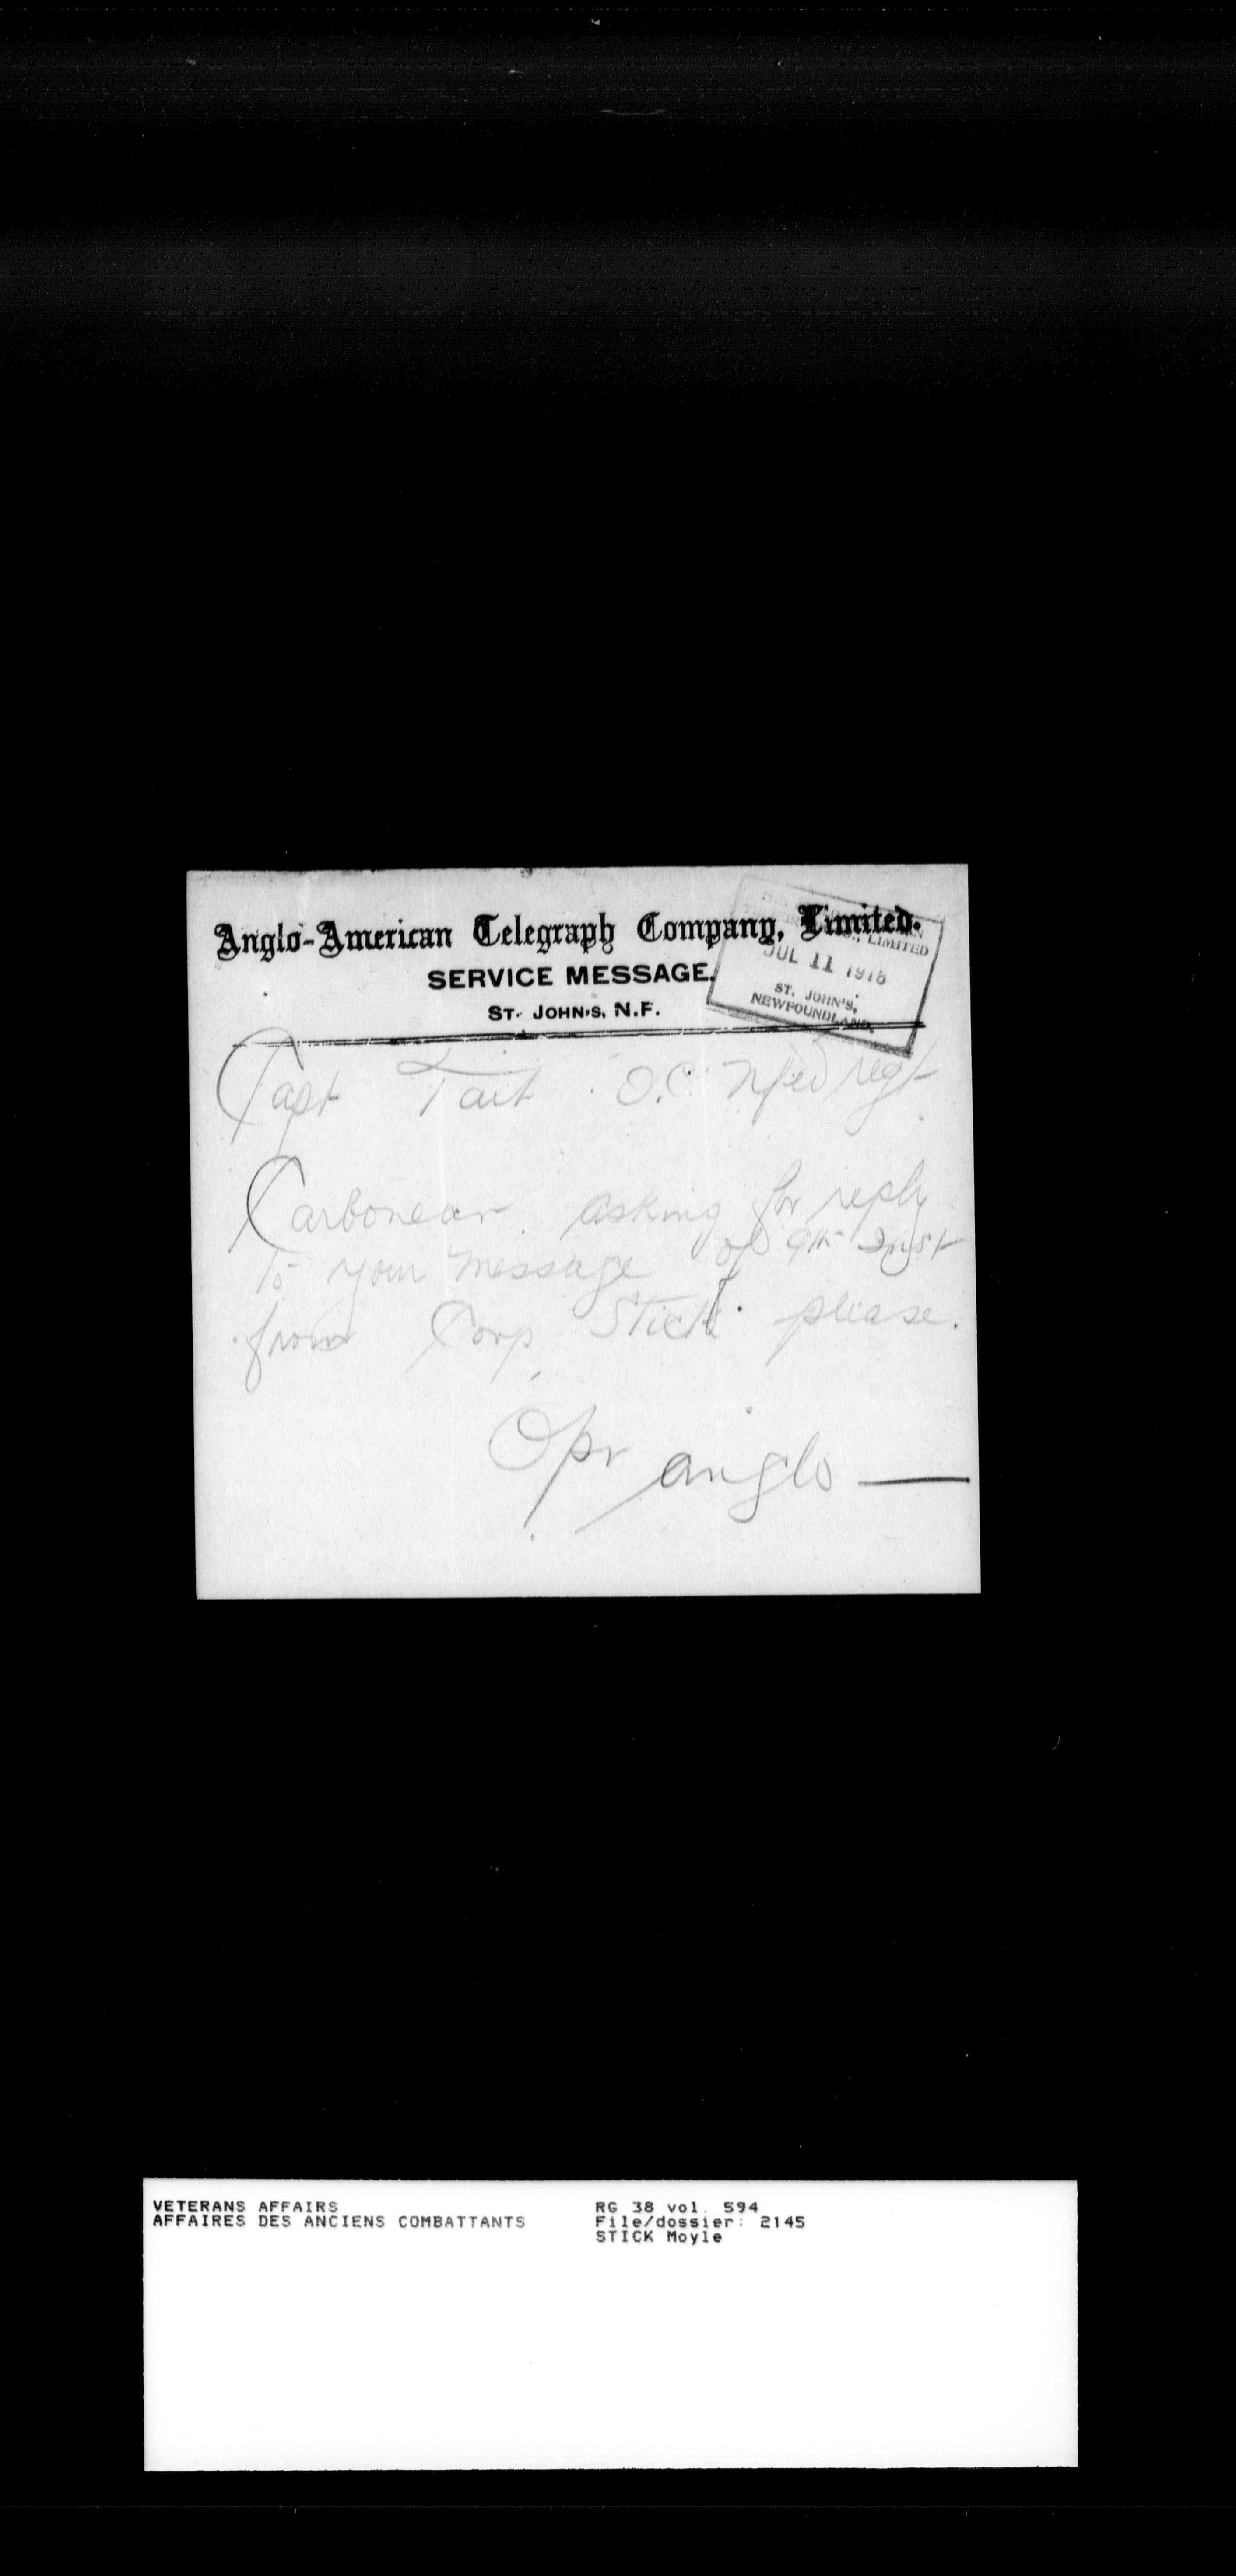 Anglo-American Telegraph Company, Limited.
SERVICE MESSAGE.
ST. JOHN'S, N.F.
LIMITED
JUL 11 1918
ST. JOHN'S,
NEWFOUNDLAND.
Capt Tait O.C. Nfld regt
Carbonear asking for reply
to your message of 9th Inst
from Corp Stick please.
Opr anglo —
VETERANS AFFAIRS
AFFAIRES DES ANCIENS COMBATTANTS
RG 38 vol. 594
File/dossier: 2145
STICK Moyle